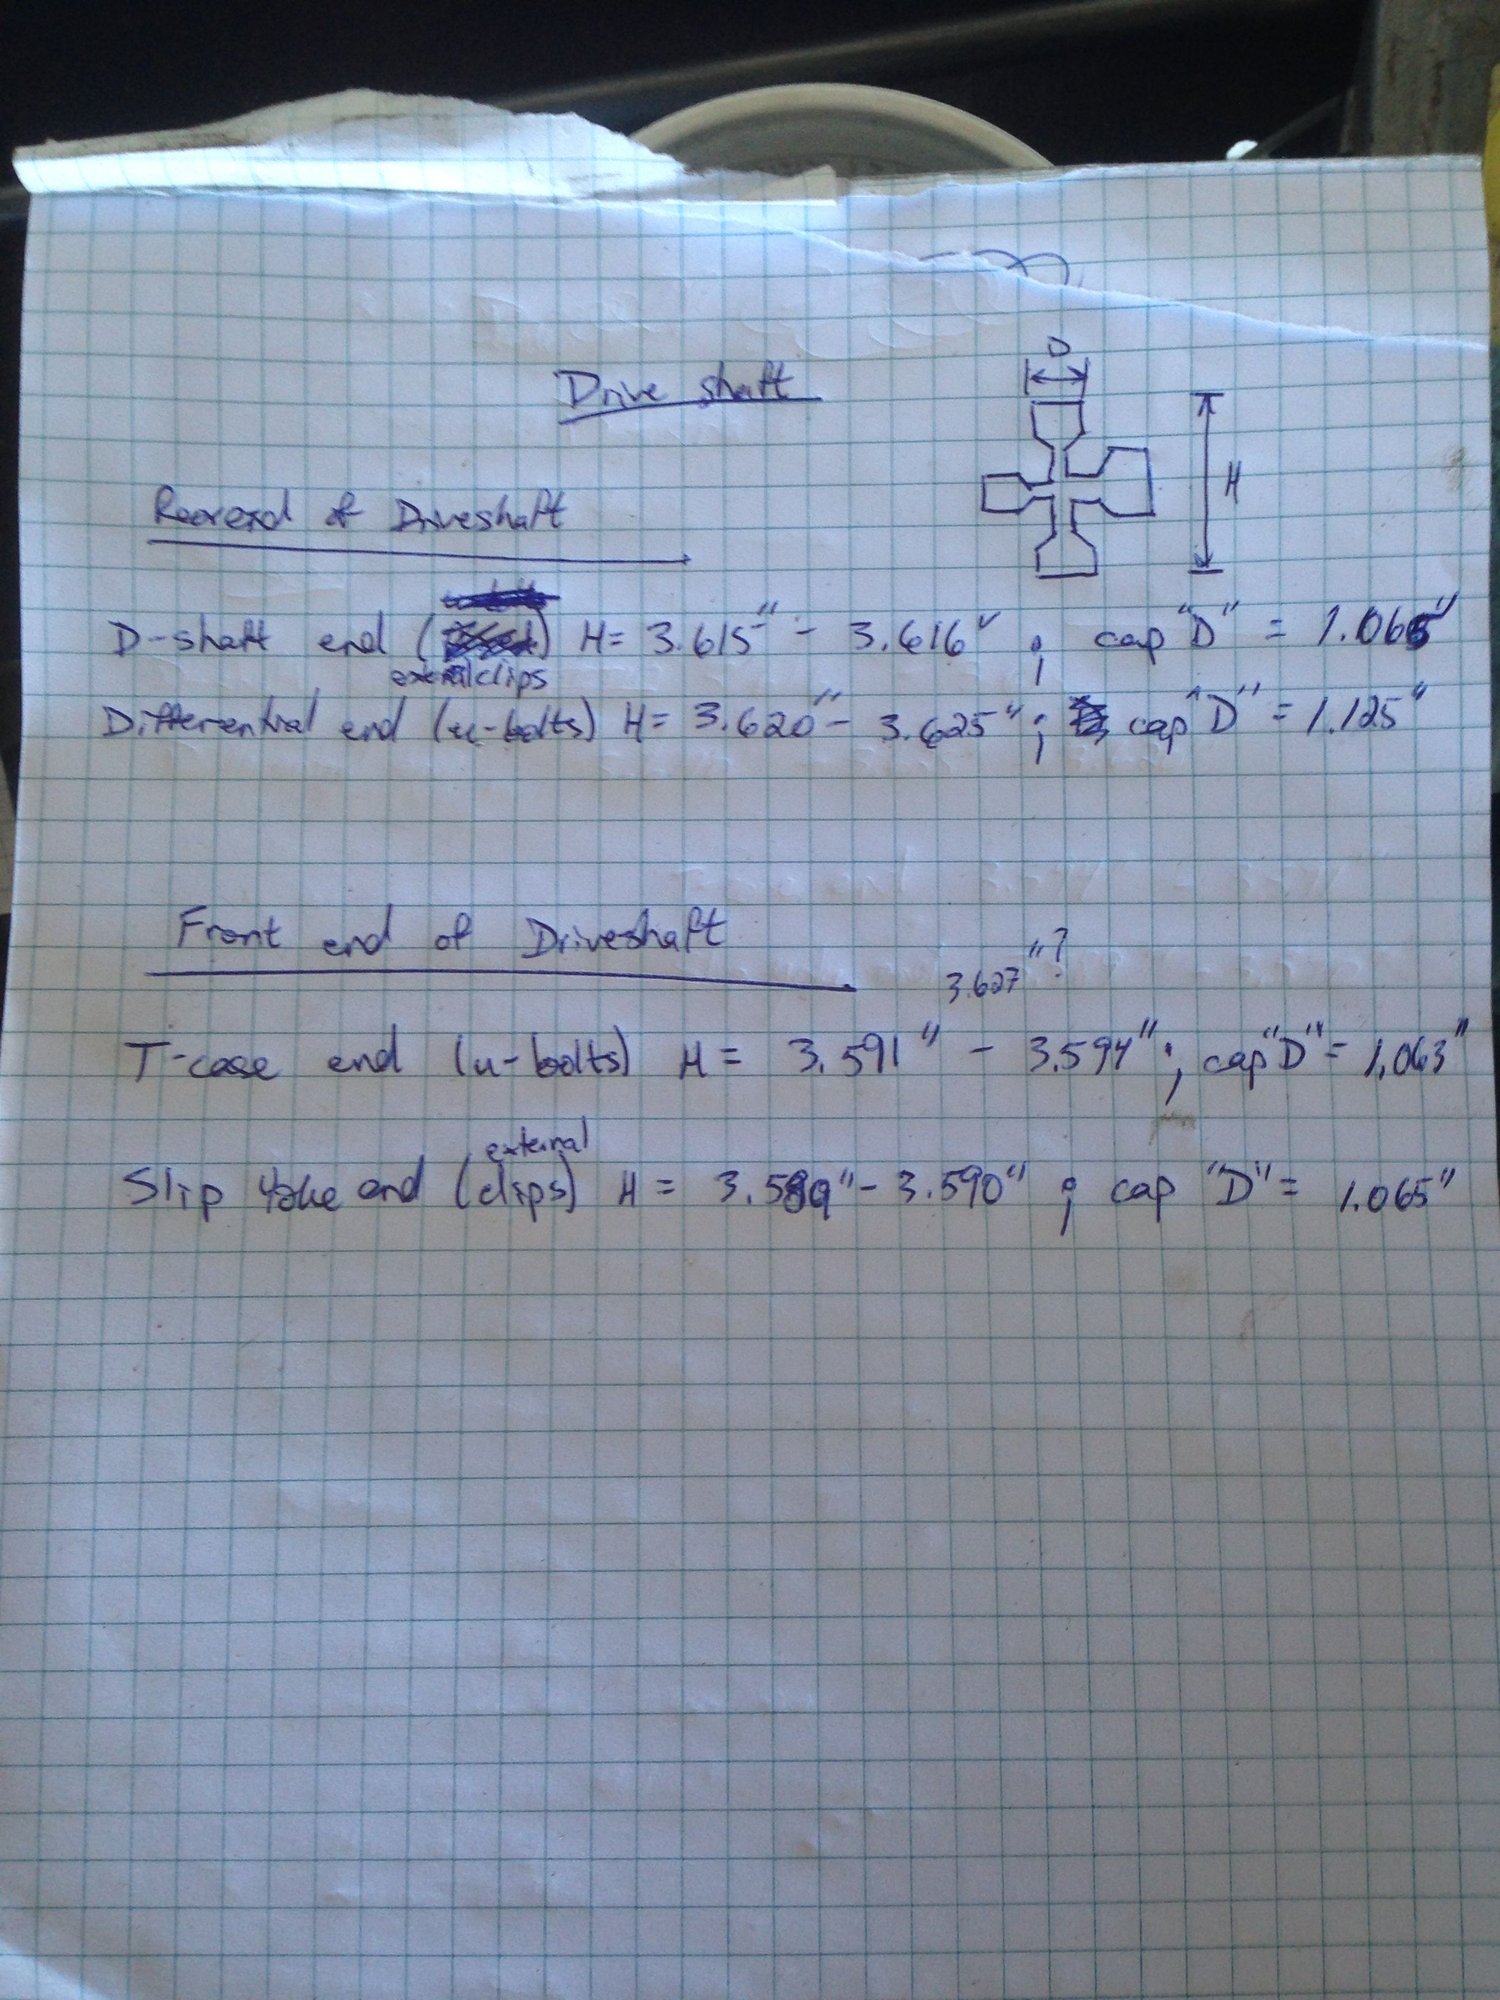 Drive shaft
D
H
Rearend of Driveshaft
D-shaft end ( ) H= 3.615" - 3.616" ; cap "D" = 1.065"
external clips
Differential end (u-bolts) H= 3.620" - 3.625" ; cap "D" = 1.125"
Front end of Driveshaft
3.627"?
T-case end (u-bolts) H= 3.591" - 3.594" ; cap "D" = 1.063"
external
Slip yoke end (clips) H= 3.589" - 3.590" ; cap "D" = 1.065"